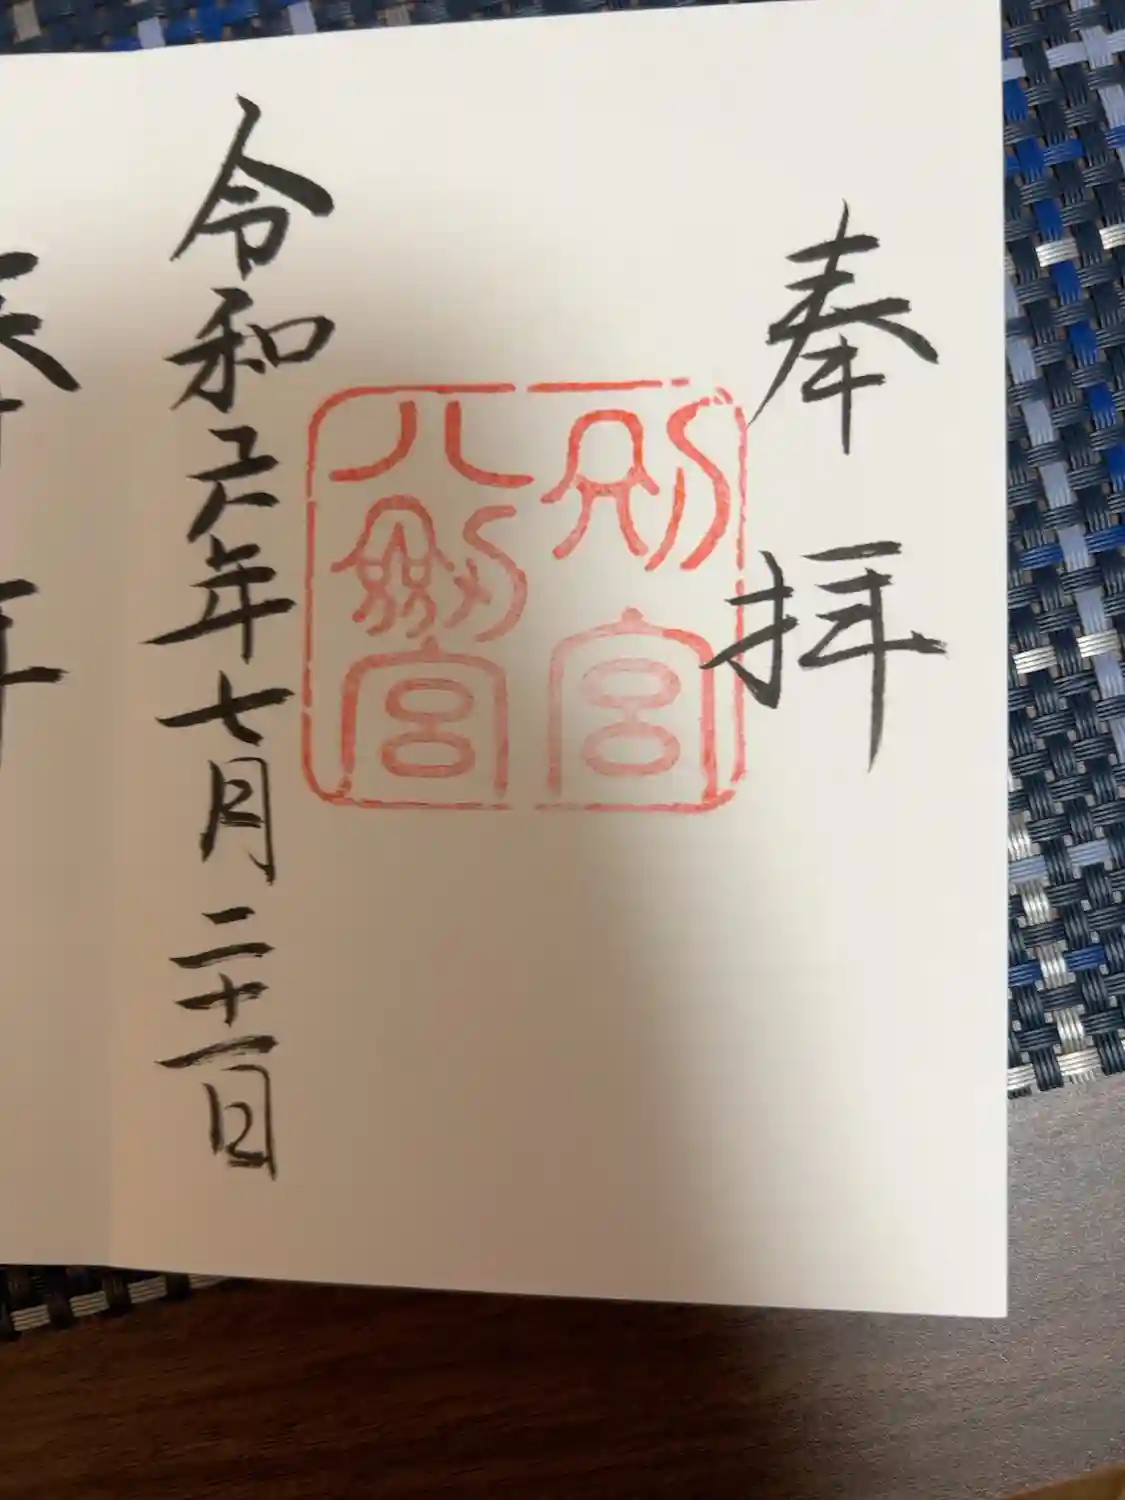 奉拝
別宮
八剱宮
令和六年七月二十一日